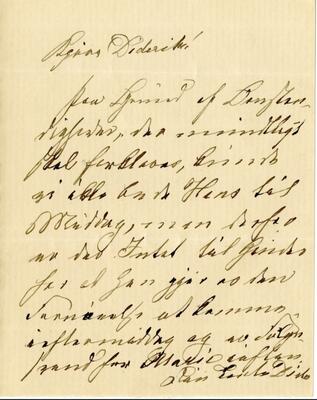 Kjære Diderik!
Paa Grund af Omstæn-
digheder, der mundtligt
skal forklares, kunde
vi ikke bede Hans til
Middag, men derfor
er der Intet til Hinder
for at Han gjør os den
Fornøielse at komme
i eftermiddag og
for Marie i aften
Din